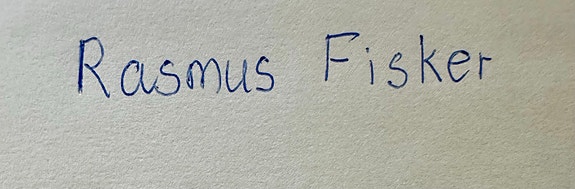 Rasmus Fisker